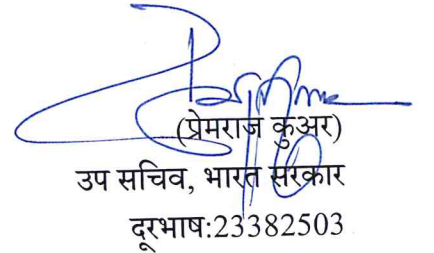 (प्रेमराज कुअर)
उप सचिव, भारत सरकार
दूरभाष:23382503